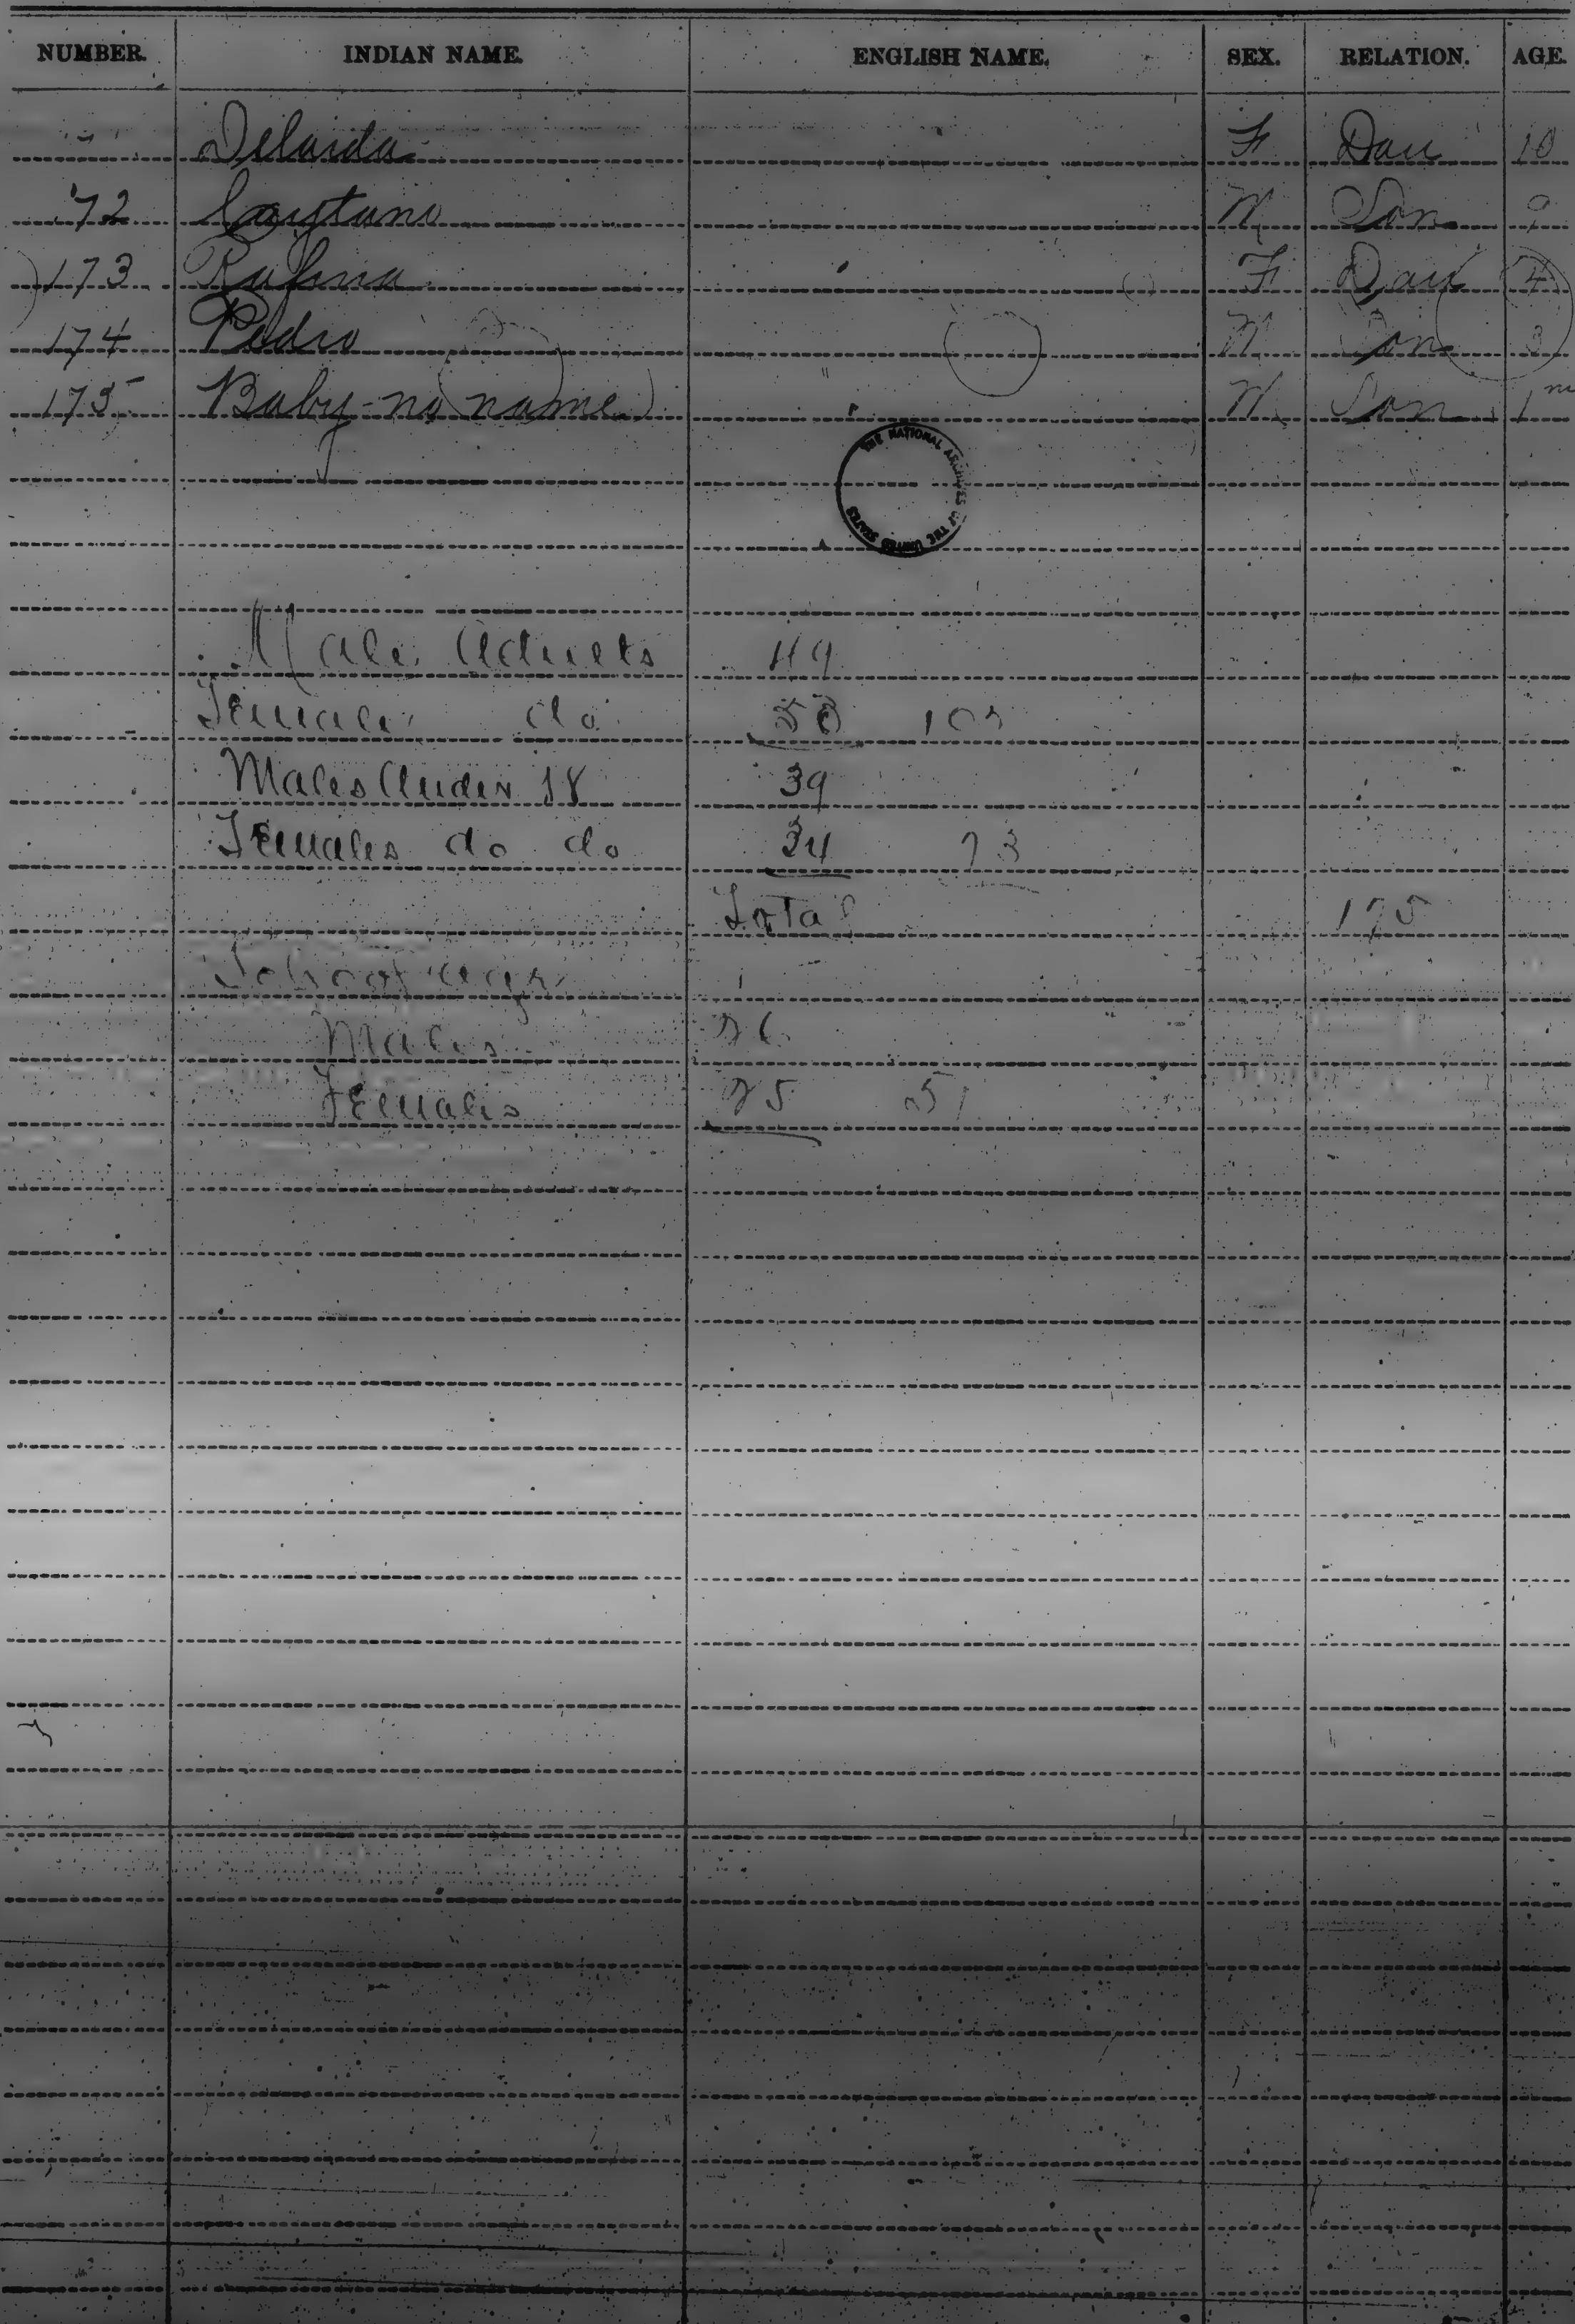 NUMBER. INDIAN NAME. ENGLISH NAME. SEX. RELATION. AGE.
Delaida F Dau 10
172 Caytano M Son 9
173 Rufina F Dau 4
174 Pedro M Son 3
175 Baby-no name M Son 1 m
THE NATIONAL ARCHIVES OF THE UNITED STATES
Males Adults 49
Females do
Males Under 18 39
Females do do 34 73
Total 175
School age
Males 26
Females 25 51